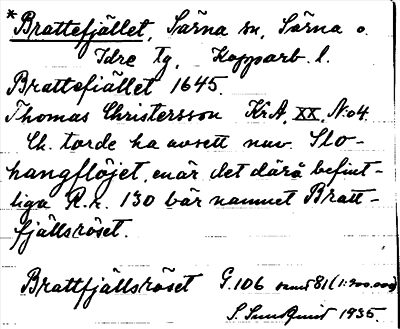 *Brattefjället, Särna sn, Särna o.
Idre tg, Kopparb. l.
Brattefiället 1645.
Thomas Christersson KrA, XX, N:o 4.
Ch. torde ha avsett nuv. Slo-
hangflöjet, enär det därå befint-
liga R.r. 130 bär namnet Bratt-
fjällsröset.
Brattfjällsröset G.106 1:200.000)
S. Sundquist 1935.